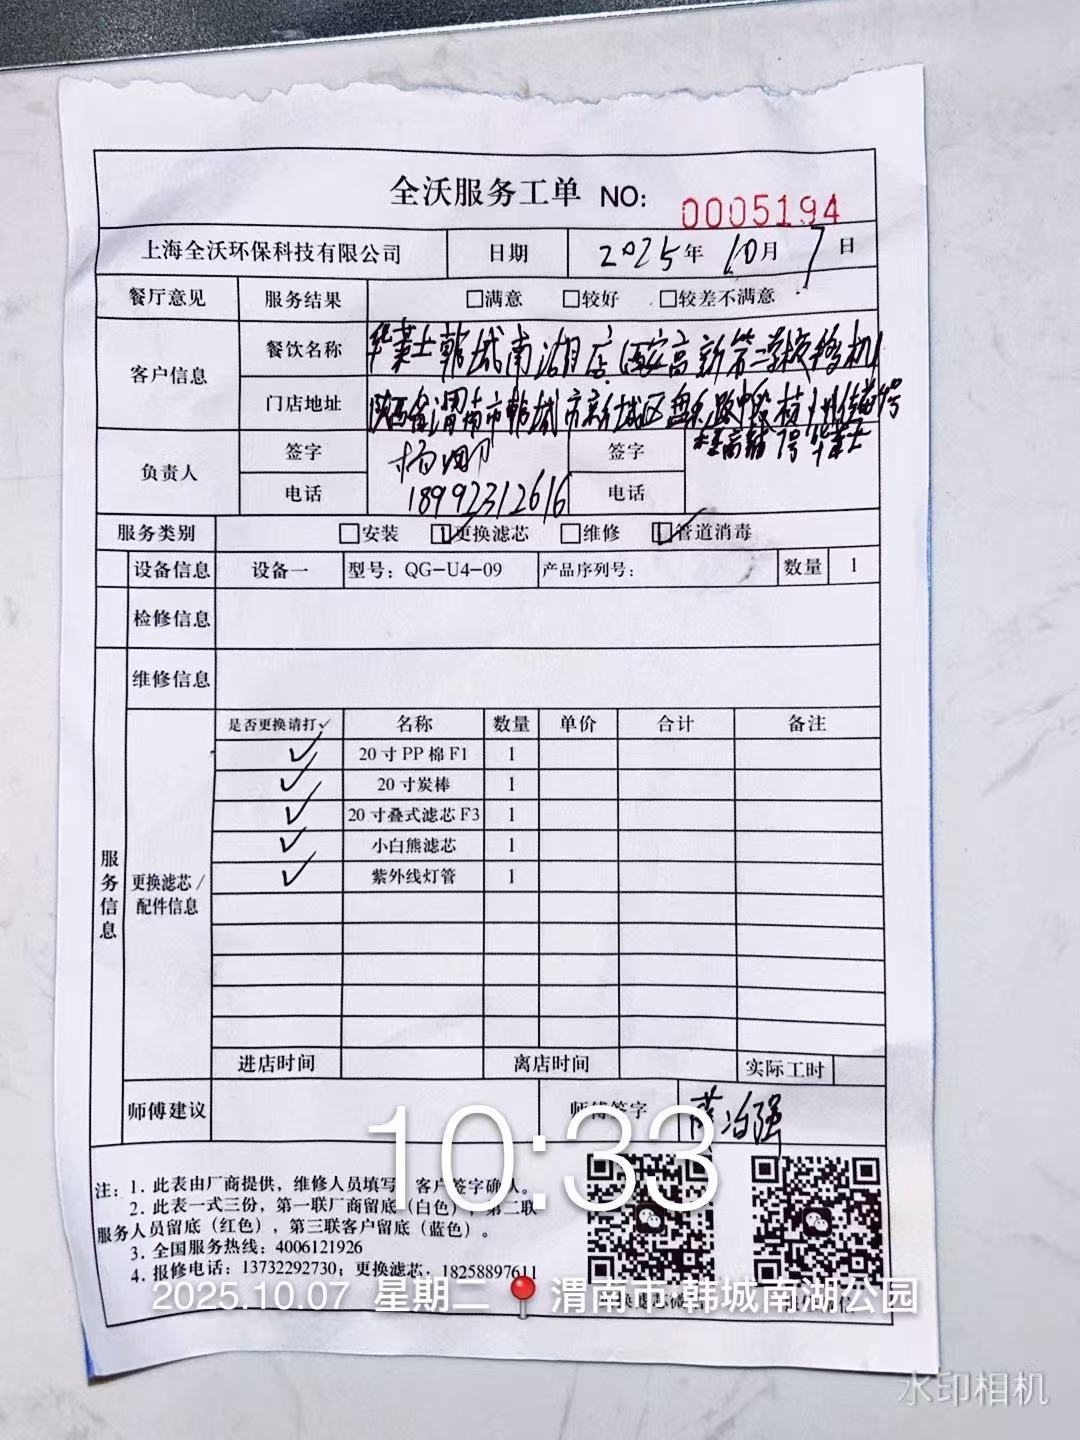 全沃服务工单 NO: 0005194
上海全沃环保科技有限公司 日期 2025年 10月 7日
餐厅意见 服务结果 □满意 □较好 □较差不满意
客户信息 餐饮名称 华莱士韩城南湖店(西安高新第二学校移机)
门店地址 陕西省渭南市韩城市新城区盘乐路中段
7号 华莱士
负责人 签字 签字
电话 18992312616 电话
服务类别 □安装 ☑更换滤芯 □维修 ☑管道消毒
设备信息 设备一 型号：QG-U4-09 产品序列号： 数量 1
检修信息
维修信息
服务信息
更换滤芯/
配件信息
是否更换请打✓ 名称 数量 单价 合计 备注
✓ 20寸PP棉F1 1
✓ 20寸炭棒 1
✓ 20寸叠式滤芯F3 1
✓ 小白熊滤芯 1
✓ 紫外线灯管 1
进店时间 离店时间 实际工时
师傅建议 师傅签字
10:33
注：1. 此表由厂商提供，维修人员填写，客户签字确认。
2. 此表一式三份，第一联厂商留底（白色），第二联
服务人员留底（红色），第三联客户留底（蓝色）。
3. 全国服务热线：4006121926
4. 报修电话：13732292730；更换滤芯：18258897611
2025.10.07 星期二 渭南市·韩城南湖公园
水印相机